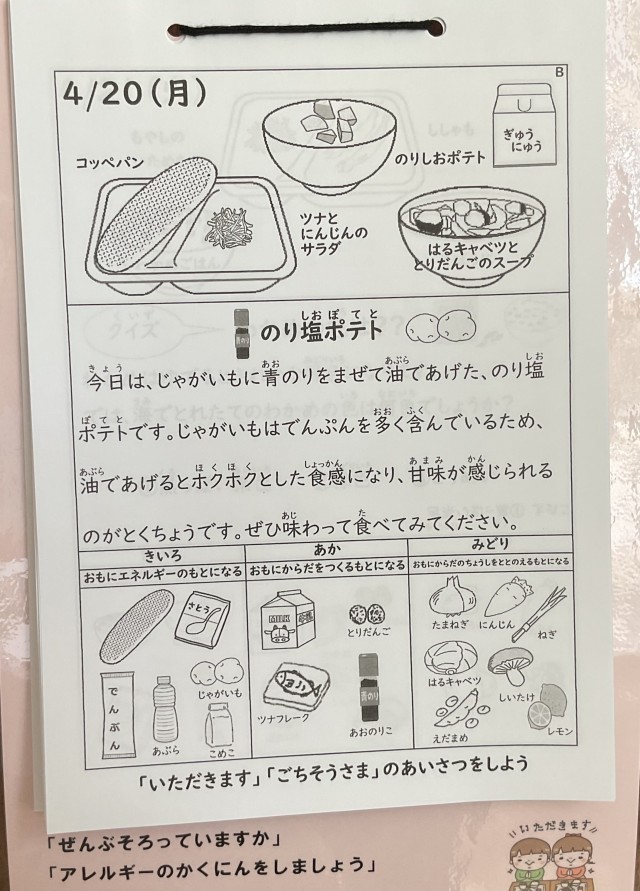 B
4/20(月)
コッペパン
のりしおポテト
ぎゅう
にゅう
ツナと
にんじんの
サラダ
はるキャベツと
とりだんごのスープ
のり塩ポテト
しおぽてと
きょう あお あぶら しお
今日は、じゃがいもに青のりをまぜて油であげた、のり塩
ぽてと おお ふく
ポテトです。じゃがいもはでんぷんを多く含んでいるため、
あぶら ほくほく しょっかん あまみ かん
油であげるとホクホクとした食感になり、甘味が感じられる
あじ た
のがとくちょうです。ぜひ味わって食べてみてください。
きいろ
おもにエネルギーのもとになる
さとう
じゃがいも
でんぷん
あぶら
こめこ
あか
おもにからだをつくるもとになる
MILK
とりだんご
ツナフレーク
青のり
あおのりこ
みどり
おもにからだのちょうしをととのえるもとになる
たまねぎ
にんじん
ねぎ
はるキャベツ
しいたけ
えだまめ
レモン
「いただきます」「ごちそうさま」のあいさつをしよう
「ぜんぶそろっていますか」
「アレルギーのかくにんをしましょう」
いただきます